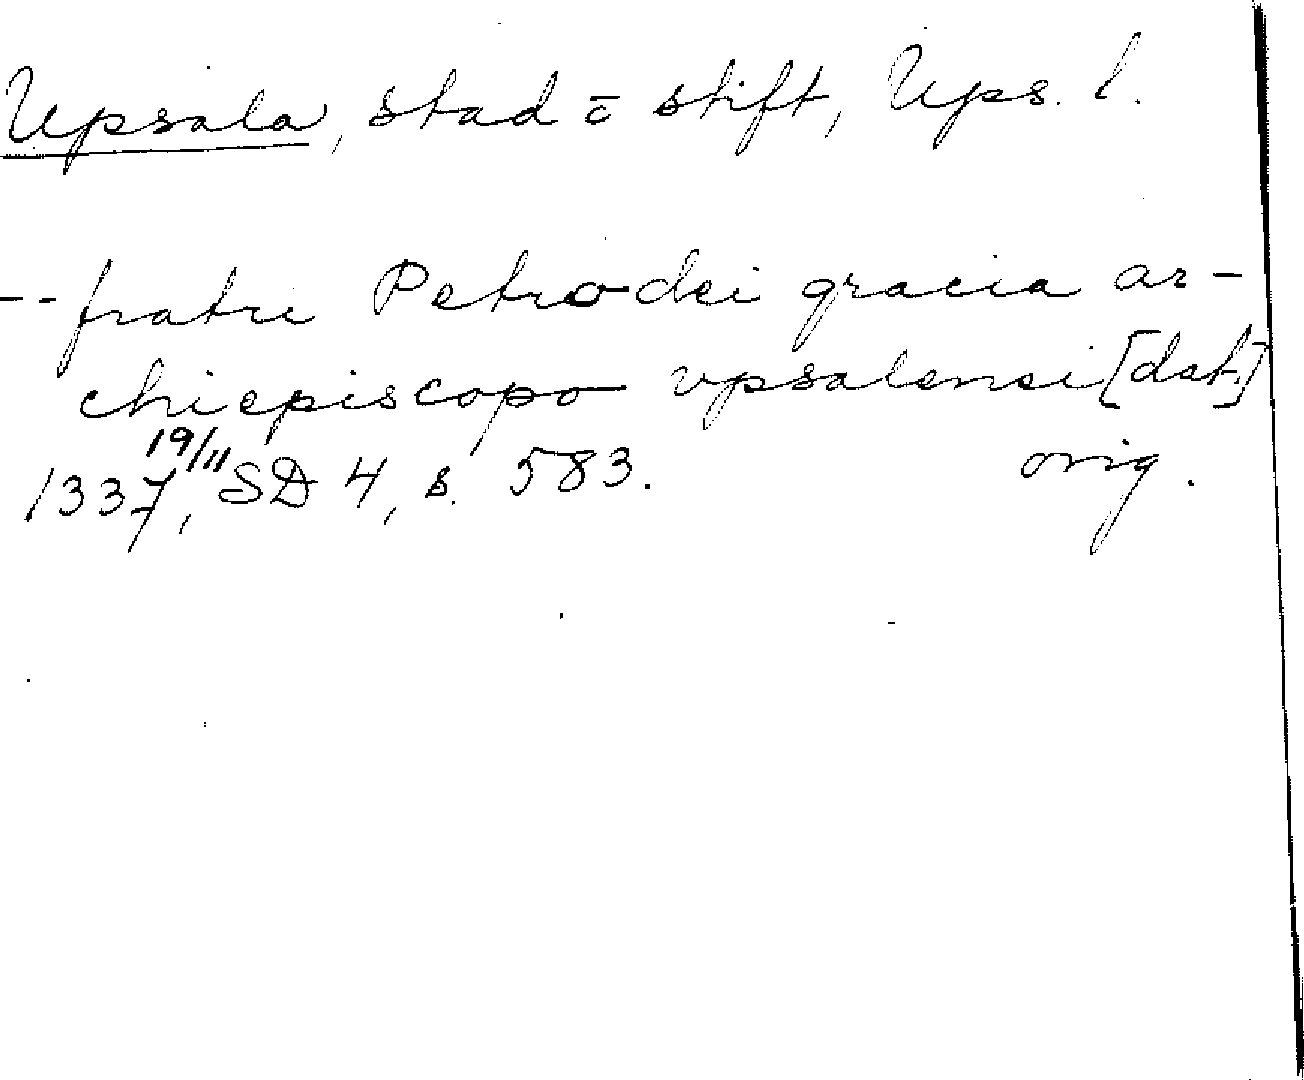 Upsala, stad o stift, Ups. l.
-- fratri Petro dei gracia ar-
chiepiscopo vpsalensi [dat.]
19/11
1337, SD 4, s. 583. orig.